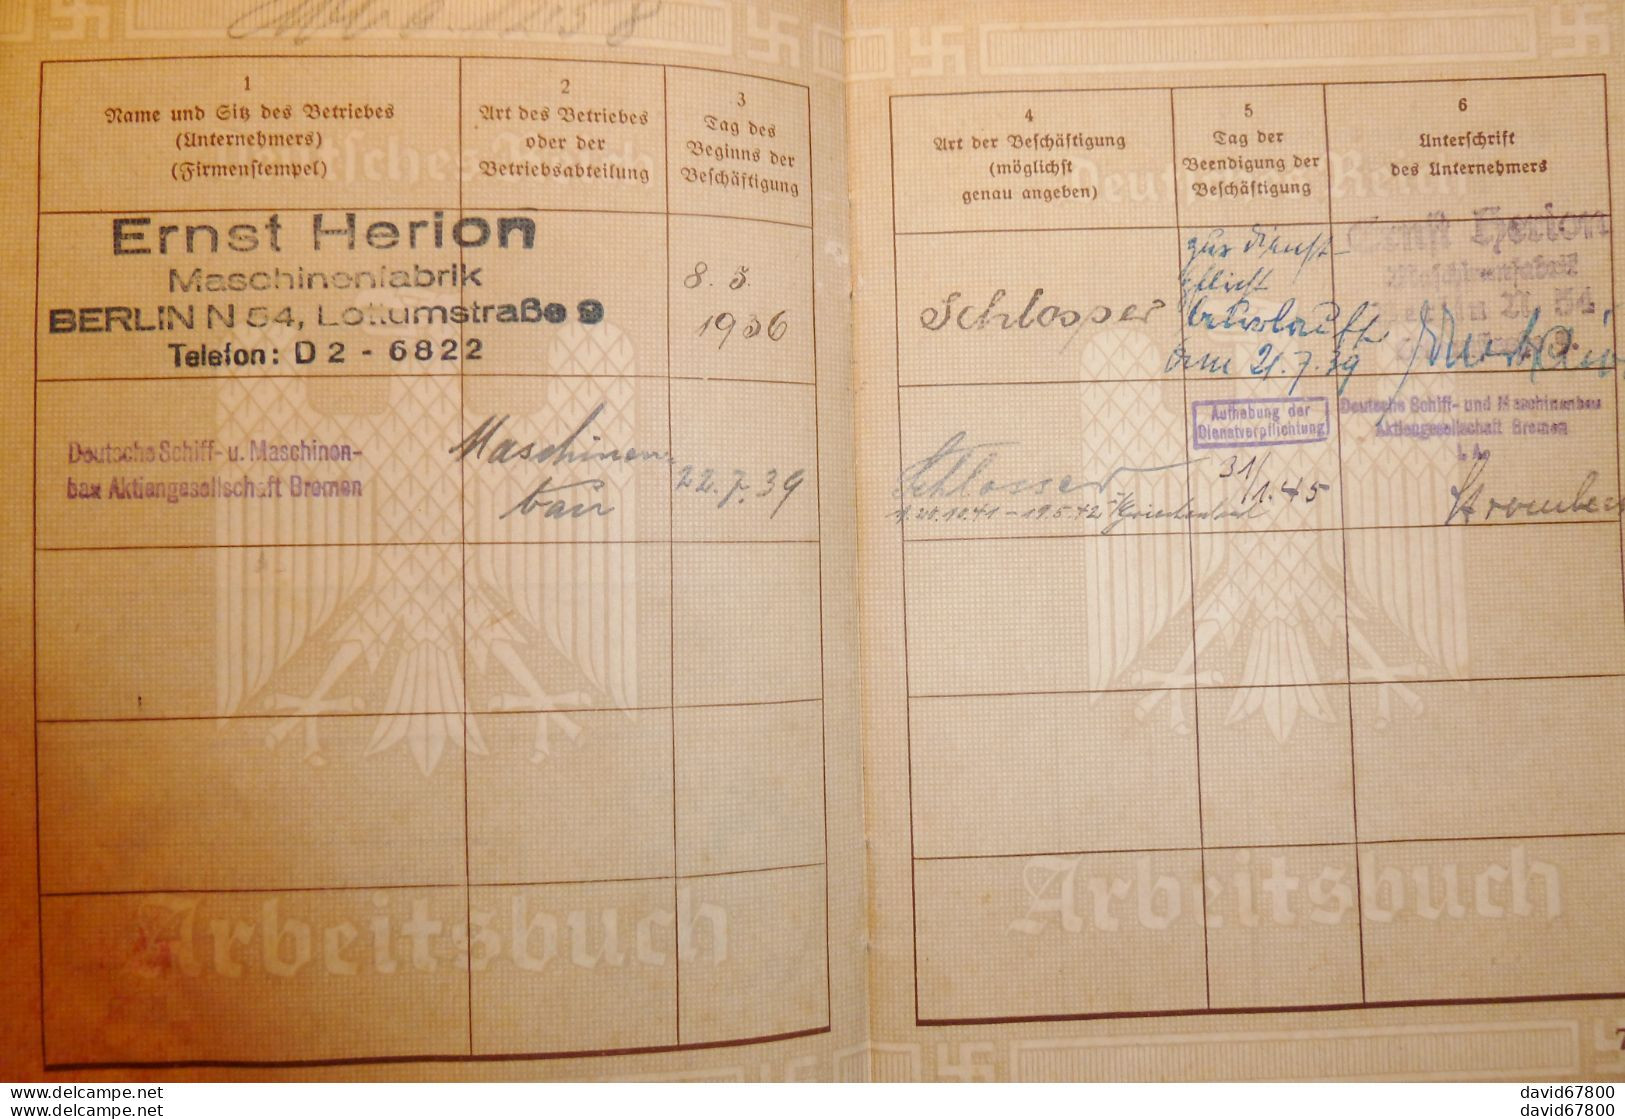 1
Name und Sitz des Betriebes
(Unternehmers)
(Firmenstempel)
2
Art des Betriebes
oder der
Betriebsabteilung
3
Tag des
Beginns der
Beschäftigung
Ernst Herion
Maschinenfabrik
BERLIN N 54, Lottumstraße 9
Telefon: D 2 - 6822
8. 5.
1936
Deutsche Schiff- u. Maschinen-
bau Aktiengesellschaft Bremen
Maschinen
bau
22.7.39
Arbeitsbuch
4
Art der Beschäftigung
(möglichst
genau angeben)
5
Tag der
Beendigung der
Beschäftigung
6
Unterschrift
des Unternehmers
Deutsches Reich
Schlosser
zur Dienst-
pflicht
beurlaubt
am 21.7.39
Ernst Herion
Maschinenfabrik
Berlin N. 54
Schlosser
v. 20.10.41 - 19.5.42 i/Griechenland
Aufhebung der
Dienstverpflichtung
31/1.45
Deutsche Schiff- und Maschinenbau
Aktiengesellschaft Bremen
I. A.
Arbeitsbuch
7
delcampe.net
delcampe.net
david67800
david67800